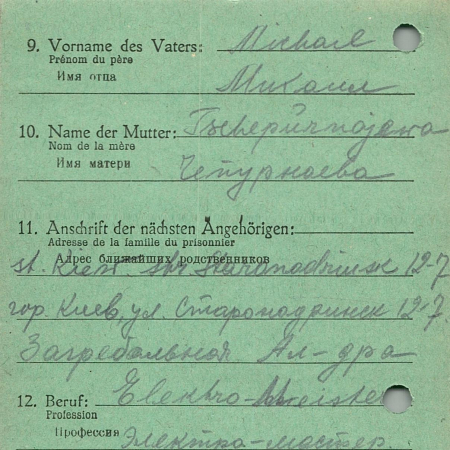 9. Vorname des Vaters: Michael
Prénom du père
Имя отца Михаил
10. Name der Mutter: Tschepurnajewa
Nom de la mère
Имя матери Чепурнаева
11. Anschrift der nächsten Angehörigen:
Adresse de la famille du prisonnier
Адрес ближайших родственников
st. Kiew. str. 12-7
гор. Киев, ул. 12-7
Ал-дра
12. Beruf: Elektro-Meister
Profession
Профессия Электра-мастер.